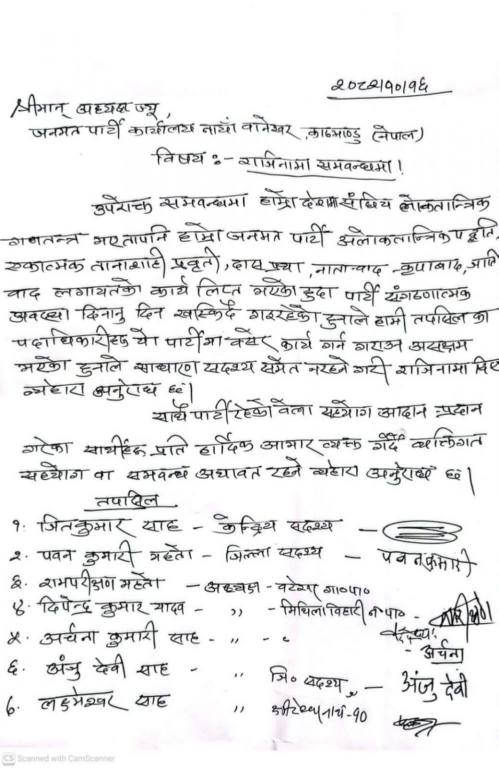 २०८२।१०।१६
श्रीमान् अध्यक्ष ज्यू,
जनमत पार्टी कार्यालय नायाँ वानेश्वर, काठमाण्डु (नेपाल)
विषय :- राजिनामा सम्वन्धमा।
उपरोक्त सम्वन्धमा हाम्रो देशमा संघिय लोकतान्त्रिक
गणतन्त्र भएतापनि हाम्रो जनमत पार्टी अलोकतान्त्रिक पद्धति,
एकात्मक तानाशाही प्रवृती, दास प्रथा, नातावाद, कृपावाद, जाति
वाद लगायतको कार्य लिप्त भएको हुदा पार्टी संगठणात्मक
अवस्था दिनानु दिन खस्किदै गइरहेको हुनाले हामी तपसिल का
पदाधिकारीहरु यो पार्टीमा वसेर कार्य गर्न गराउन असक्षम
भएको हुनाले साधारण सदश्य समेत नरहने गरी राजिनामा दिएको
व्यहोरा अनुरोध छ।
साथै पार्टी रहेको वेला सहयोग आदान प्रदान
गरेका साथीहरु प्रति हार्दिक आभार व्यक्त गर्दै व्यक्तिगत
सहयोग वा सम्वन्ध यथावत रहने व्यहोरा अनुरोध छ।
तपसिल
१. जितकुमार साह - केन्द्रिय सदश्य -
२. पवन कुमारी महतो - जिल्ला सदश्य - पवनकुमारी
३. रामपरीक्षण महतो - अध्यक्ष - वटेश्वर गा०पा०
४. दिपेन्द्र कुमार यादव - ,, - मिथिला विहारी न०पा० -
५. अर्चना कुमारी साह - ,, - अर्चना
६. अंजु देवी साह - ,, जि० सदश्य - अंजु देवी
७. साह ,, -१०
CS Scanned with CamScanner